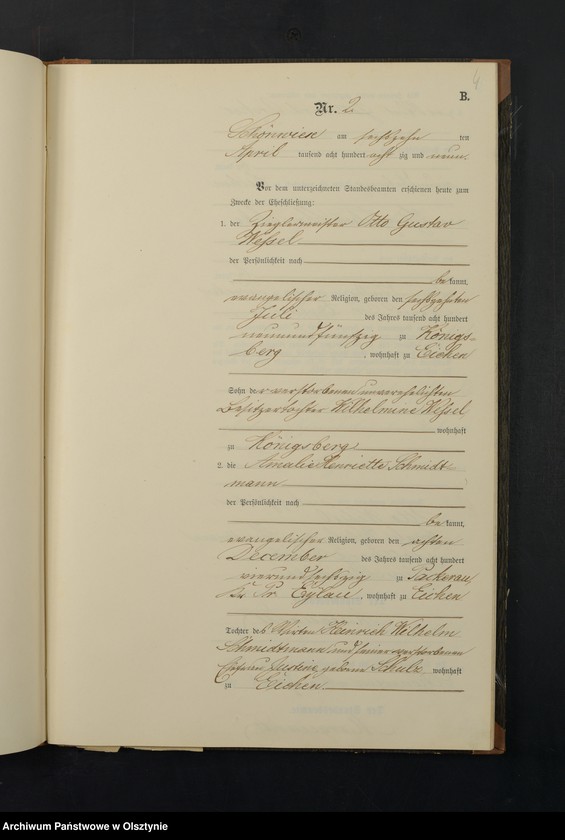 4
B.
Nr. 2
Schönwiese am sechszehn ten
April tausend acht hundert acht zig und neun.
Vor dem unterzeichneten Standesbeamten erschienen heute zum
Zwecke der Eheschließung:
1. der Zieglermeister Otto Gustav
Wessel
der Persönlichkeit nach
be kannt,
evangelischer Religion, geboren den sechszehnten
Juli des Jahres tausend acht hundert
neunundfünfzig zu Königs-
berg, wohnhaft zu Eichen
Sohn der verstorbenen unverehelichten
Besitzertochter Wilhelmine Wessel
wohnhaft
zu Königsberg
2. die Amalie Henriette Schmidt-
mann
der Persönlichkeit nach
be kannt,
evangelischer Religion, geboren den achten
December des Jahres tausend acht hundert
vierundsechszig zu Packerau
Pr. Eylau, wohnhaft zu Eichen
Tochter des Wirten Heinrich Wilhelm
Schmidtmann und seiner verstorbenen
Ehefrau Justine geborne Schulz wohnhaft
zu Eichen
Archiwum Państwowe w Olsztynie